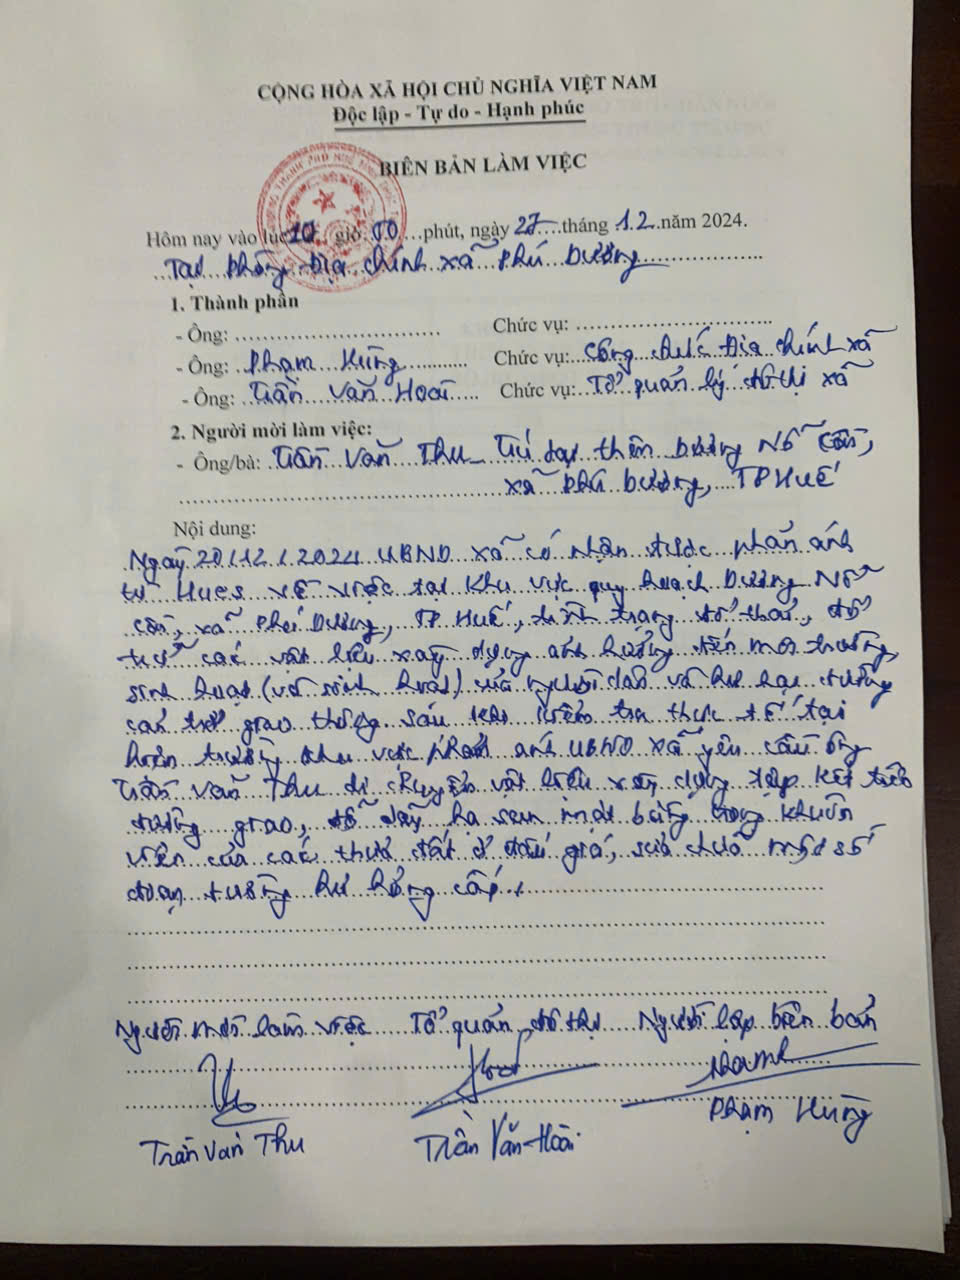 CỘNG HÒA XÃ HỘI CHỦ NGHĨA VIỆT NAM
Độc lập - Tự do - Hạnh phúc
BIÊN BẢN LÀM VIỆC
Hôm nay vào lúc 10 giờ 00 phút, ngày 27 tháng 12 năm 2024.
Tại phòng Địa chính xã Phú Dương
1. Thành phần
- Ông: ........................... Chức vụ: ...........................
- Ông: Phạm Hùng Chức vụ: Công chức Địa chính xã
- Ông: Trần Văn Hoài Chức vụ: Tổ quản lý đô thị xã
2. Người mời làm việc:
- Ông/bà: Trần Văn Thu Trú tại thôn Dương Nỗ Cồn,
xã Phú Dương, TP Huế
Nội dung:
Ngày 20/12/2024 UBND xã có nhận được phản ánh
từ Hues về việc tại khu vực quy hoạch Dương Nỗ
Cồn, xã Phú Dương, TP Huế, tình trạng đổ thải, đổ
trữ các vật liệu xây dựng ảnh hưởng đến môi trường
sinh hoạt (vệ sinh ) của người dân và hư hại đường
cản trở giao thông sau khi kiểm tra thực tế tại
hiện trường khu vực phản ánh UBND xã yêu cầu ông
Trần Văn Thu di chuyển vật liệu xây dựng tập kết trên
đường giao, hạ san mặt bằng trong khuôn
viên của các thửa đất ở đấu giá, sửa chữa một số
đoạn đường hư hỏng cấp.
Người mời làm việc Tổ quản đô thị Người lập biên bản
Trần Văn Thu Trần Văn Hoài Phạm Hùng